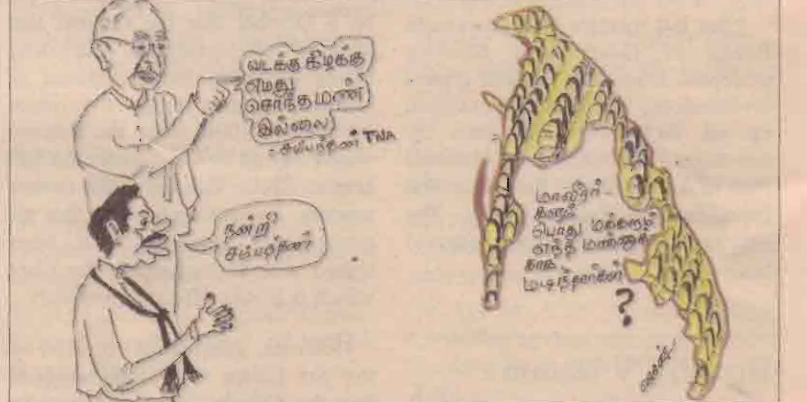 வடக்கு கிழக்கு
எமது
சொந்த மண்
இல்லை
- சம்பந்தன் TNA
நன்றி
சம்பந்தன்
மாவீரர்
களும்
பொது மக்களும்
எந்த மண்ணுக்
காக
மடிந்தார்கள்
?